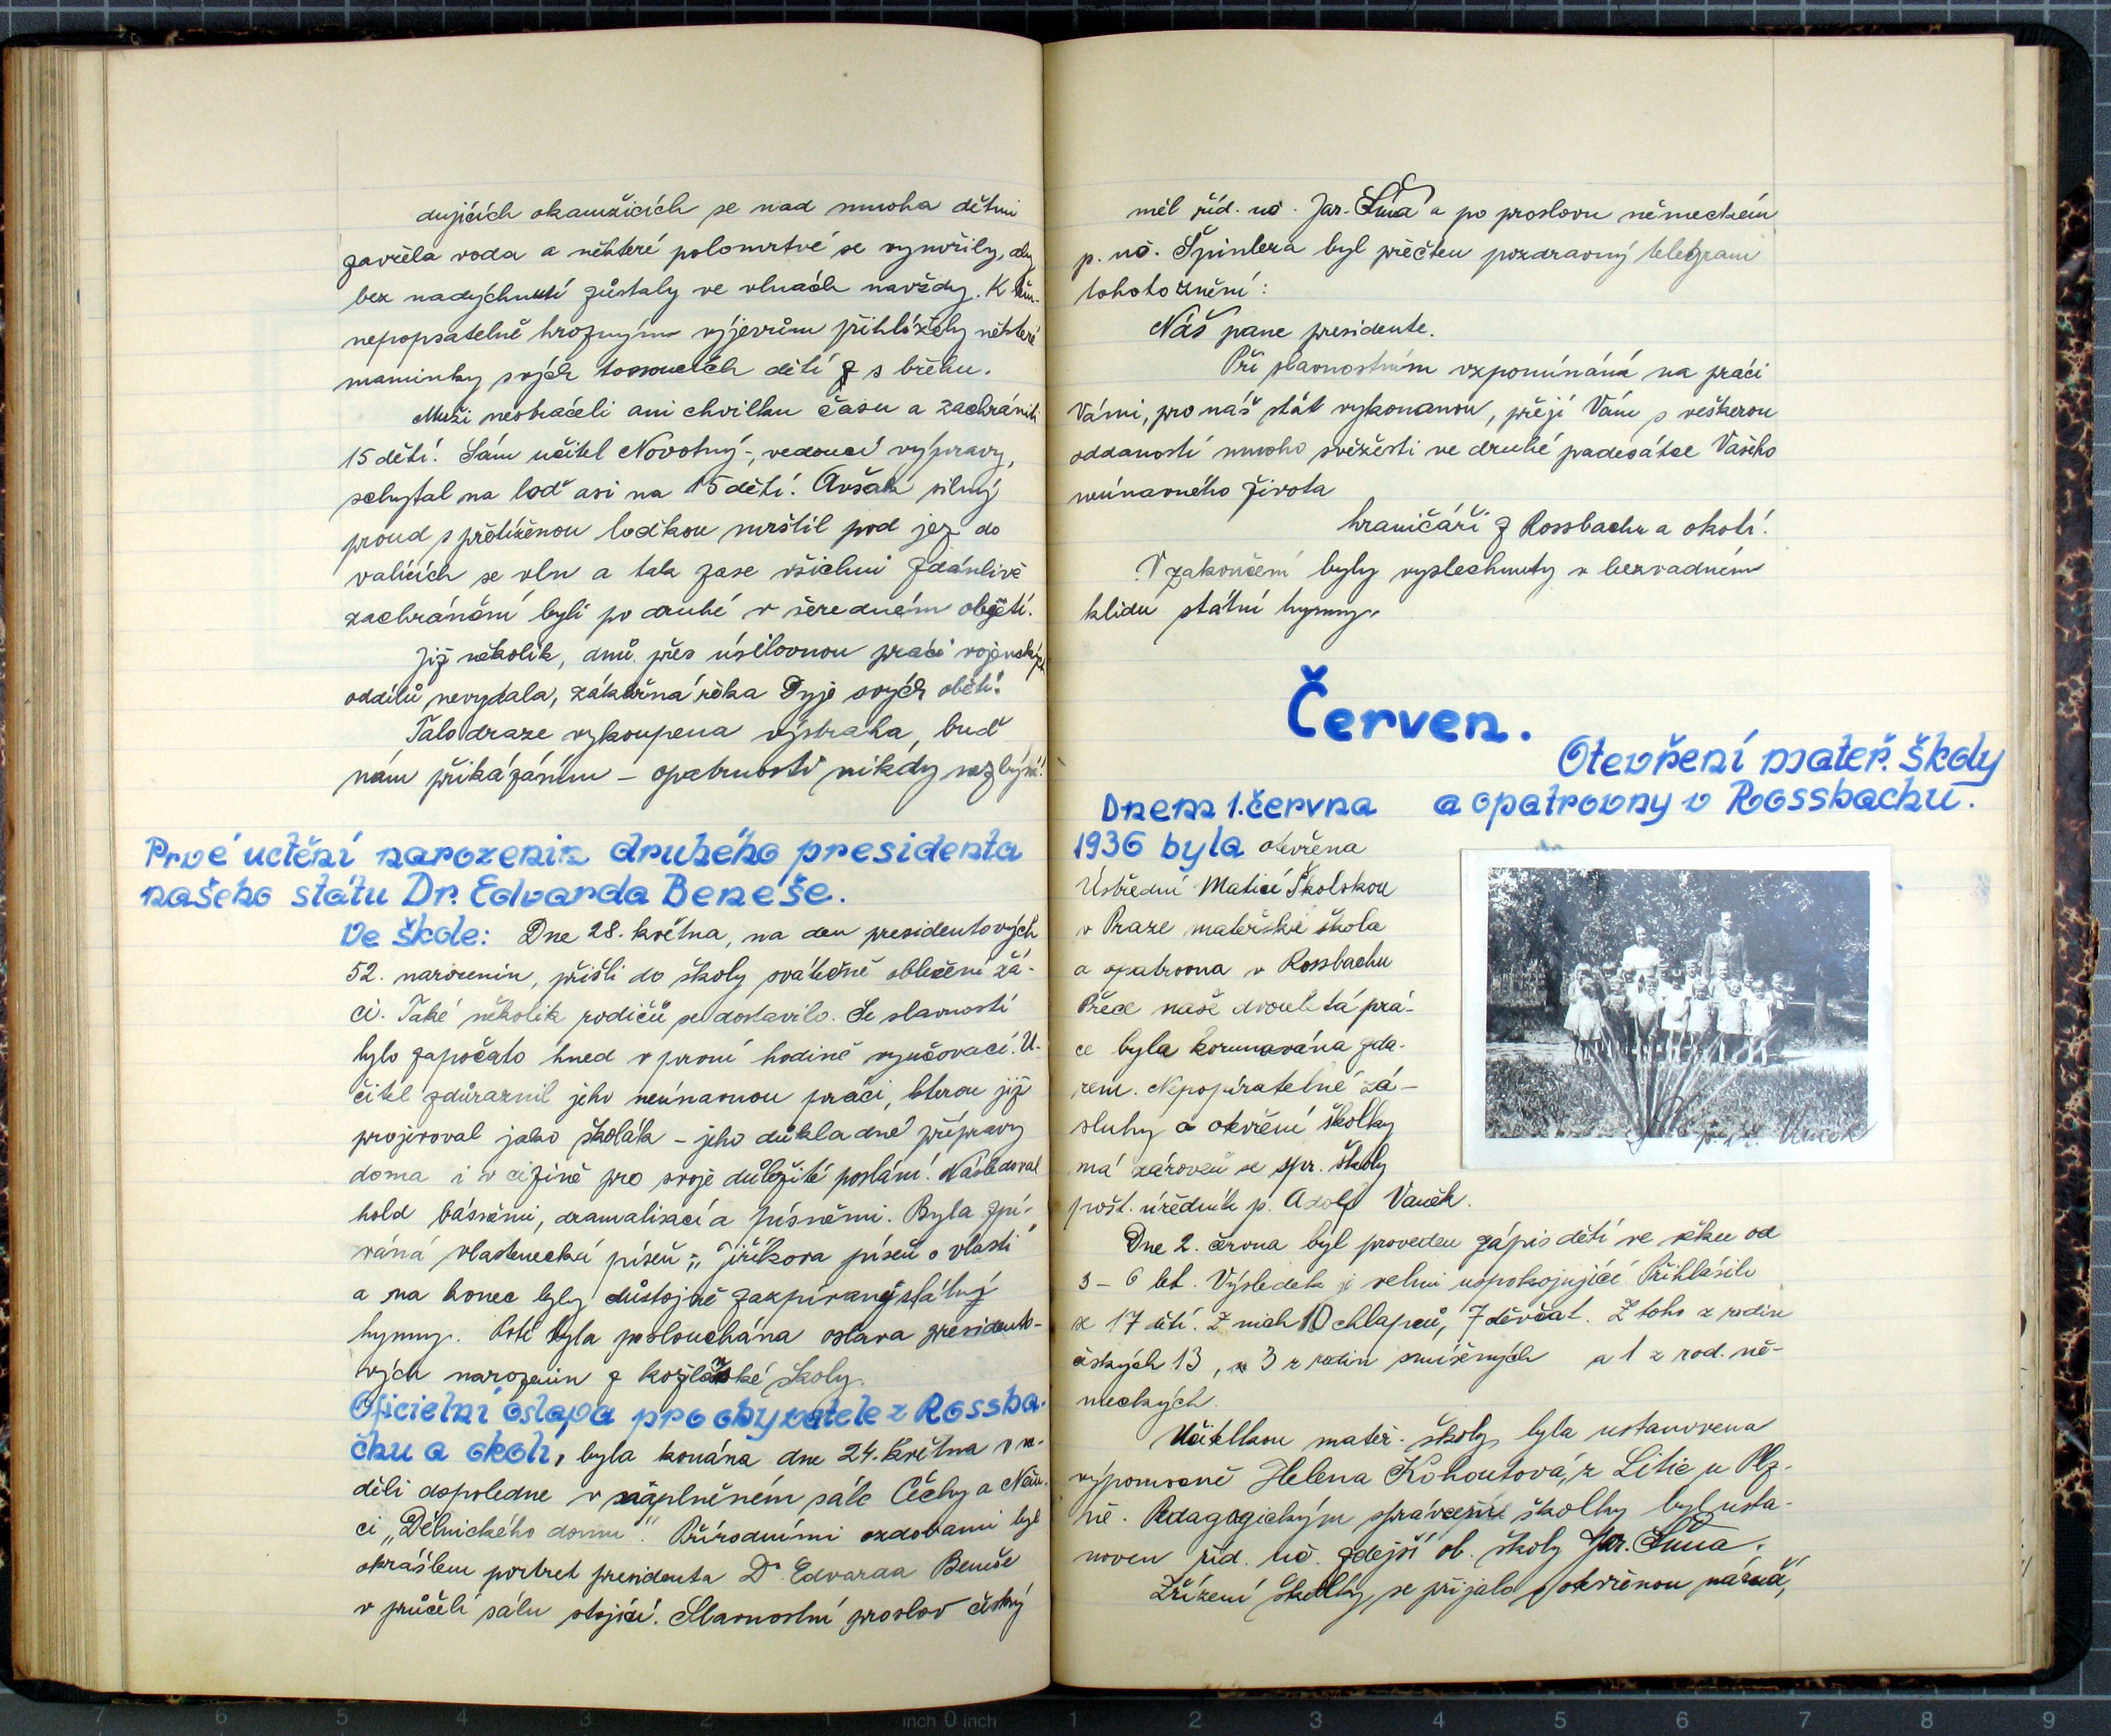 dujících okamžicích se nad mnoha dětmi
zavřela voda a některé polomrtvé se vynořily, aby
bez nadýchnutí zůstaly ve vlnách navždy. K těm
nepopsatelně hrozným výjevům přihlížely některé
maminky svých tonoucích dětí z s břehu.
Muži neztráceli ani chvilku času a zachránili
15 dětí. Sám učitel Novotný -, vedoucí výpravy,
schytal na loď asi na 15 dětí. Avšak silný
proud s přetíženou loďkou mrštil pod jez do
valících se vln a tak zase všichni zdánlivě
zachránění byli po druhé v šeredném objetí.
Již několik, dnů přes úsilovnou práci vojenských
oddílů nevydala, zákeřná řeka Dyje svých obětí.
Tato draze vykoupena výstraha, buď
nám přikázáním - opatrnosti nikdy nezbývá!
Prvé uctění narozenin druhého presidenta
našeho státu Dr. Edvarda Beneše.
Ve škole: Dne 28. května, na den presidentových
52. narozenin, přišli do školy svátečně oblečení žá-
ci. Také několik rodičů se dostavilo. Se slavností
bylo započato hned v první hodině vyučovací. U-
čitel zdůraznil jeho neúnavnou práci, kterou již
projevoval jako školák - jeho důkladné přípravy
doma i v cizině pro svoje důležité poslání. Následoval
hold básněmi, dramatisací a písněmi. Byla zpí-
váná vlastenecká píseň „ Jiříkova píseň o vlasti"
a na konec byly důstojně zazpívány státní
hymny. Poté byla poslouchána oslava presidento-
vých narozenin z kožlanské školy.
Oficielní oslava pro obyvatele z Rossba-
chu a okolí, byla konána dne 24. května v ne-
děli dopoledne v naplněném sále Čechy a Něm-
ci „Dělnického domu". Přírodními ozdobami byl
okrášlen portret presidenta Dr Edvarda Beneše
v průčelí sálu stojící. Slavnostní proslov český
měl říd. uč. Jar. Šůna a po proslovu německém
p. uč. Špinlera byl přečten pozdravný telegram
tohoto znění:
Náš pane presidente.
Při slavnostním vzpomínáná na práci
Vámi, pro náš stát vykonanou, přejí Vám s veškerou
oddaností mnoho svěžesti ve druhé padesátce Vašeho
neúnavného života
hraničáři z Rossbachu a okolí.
V zakončení byly vyslechnuty v bezvadném
klidu státní hymny.
Červen.
Otevření mateř. školy
a opatrovny v Rossbachu.
Dnem 1. června
1936 byla otevřena
Ústřední Maticí Školskou
v Praze mateřská škola
a opatrovna v Rossbachu
Přece naše dvouletá prá-
ce byla korunována zda-
rem. Nepopíratelné zá-
sluhy o otevření školky
má zároveň se spr. školy
pošt. úředník p. Adolf Vaněk.
Dne 2. června byl proveden zápis dětí ve věku od
3 - 6 let. Výsledek je velmi uspokojující. Přihlásilo
se 17 dětí. Z nich 10 chlapců, 7 děvčat. Z toho z rodin
českých 13, 3 z rodin smíšených a 1 z rod. ně-
meckých.
Učitelkou mateř. školy byla ustanovena
výpomocně Helena Kohoutová, z Litic u Plz-
ně. Pedagogickým správcem školky byl usta-
noven říd. uč. zdejší ob. školy Jar. Šůna.
Zřízení školky, se přijalo s otevřenou náručí,